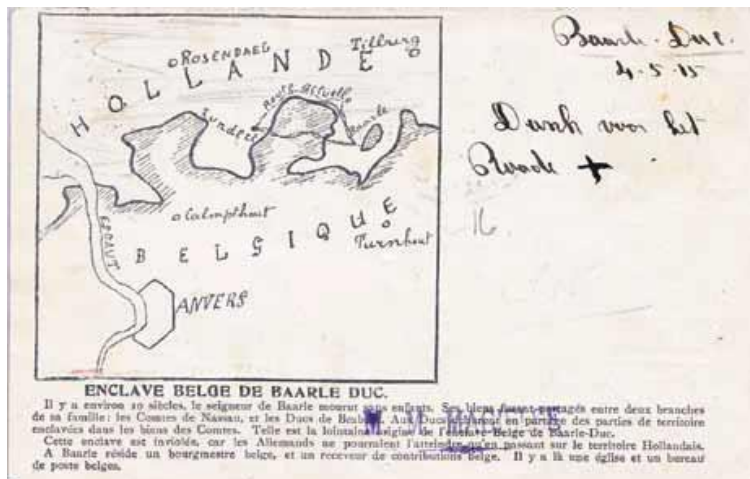 HOLLANDE
ROSENDAEL
Tilburg
Route Actuelle
Sundert
Baarle
Calmpthout
BELGIQUE
Turnhout
ESCAUT
ANVERS
Baarle-Duc.
4-5-15
Dank voor het
+
16.
ENCLAVE BELGE DE BAARLE DUC.
Il y a environ 10 siècles, le seigneur de Baarle mourut sans enfants. Ses biens furent partagés entre deux branches
de sa famille: les Comtes de Nassau, et les Ducs de Brabant. Aux Ducs échurent en partage des parties de territoire
enclavées dans les biens des Comtes. Telle est la lointaine origine de l'enclave Belge de Baarle-Duc.
Cette enclave est inviolée, car les Allemands ne pourraient l'atteindre qu'en passant sur le territoire Hollandais.
A Baarle réside un bourgmestre belge, et un receveur de contributions belge. Il y a là une église et un bureau
de poste belges.